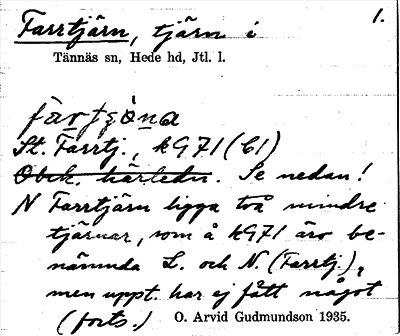 Farrtjärn, tjärn i 1.
Tännäs sn, Hede hd, Jtl. l.
St. Farrtj., k971 (C1)
Obek. härledn. Se nedan!
N Farrtjärn ligga två mindre
tjärnar, som å k971 äro be-
nämnda L. och N. (Farrtj.),
men uppt. har ej fått något
(forts.) O. Arvid Gudmundson 1935.